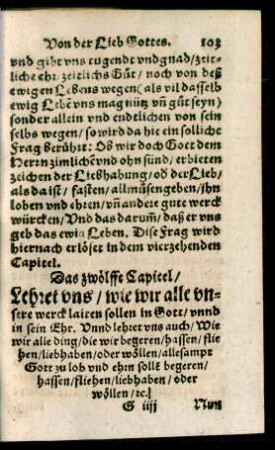 Von der Lieb Gottes. 103
vnd gibt vns tugendt vnd gnad/ zeit-
liche ehr/ zeitlichs Gůt/ noch von deß
ewigen Lebens wegen (als vil dasselb
ewig Lebē vns mag nütz vn̄ gůt seyn)
sonder allein vnd endtlichen von sein
selbs wegen/ so wird da hie ein solliche
Frag berührt: Ob wir doch Gott dem
Herrn zimlichē vnd ohn sünd/ erbieten
zeichen der Liebhabung/ od der Lieb/
als da ist/ fasten/ allmůsengeben/ jhn
loben vnd ehren/ vn̄ andere gute werck
würcken/ Vnd das darum̄/ daß er vns
geb das ewig Leben. Dise Frag wird
hiernach erlöset in dem vierzehenden
Capitel.
Das zwölffte Capitel/
Lehret vns/ wie wir alle vn-
sere werck laiten sollen in Gott/ vnnd
in sein Ehr. Vnnd lehret vns auch/ Wie
wir alle ding/ die wir begeren/ hassen/ flie
hen/ liebhaben/ oder wöllen/ allesampt
Gott zu lob vnd ehrn sollē begeren/
hassen/ fliehen/ liebhaben/ oder
wöllen/ ꝛc.
G iiij Nun